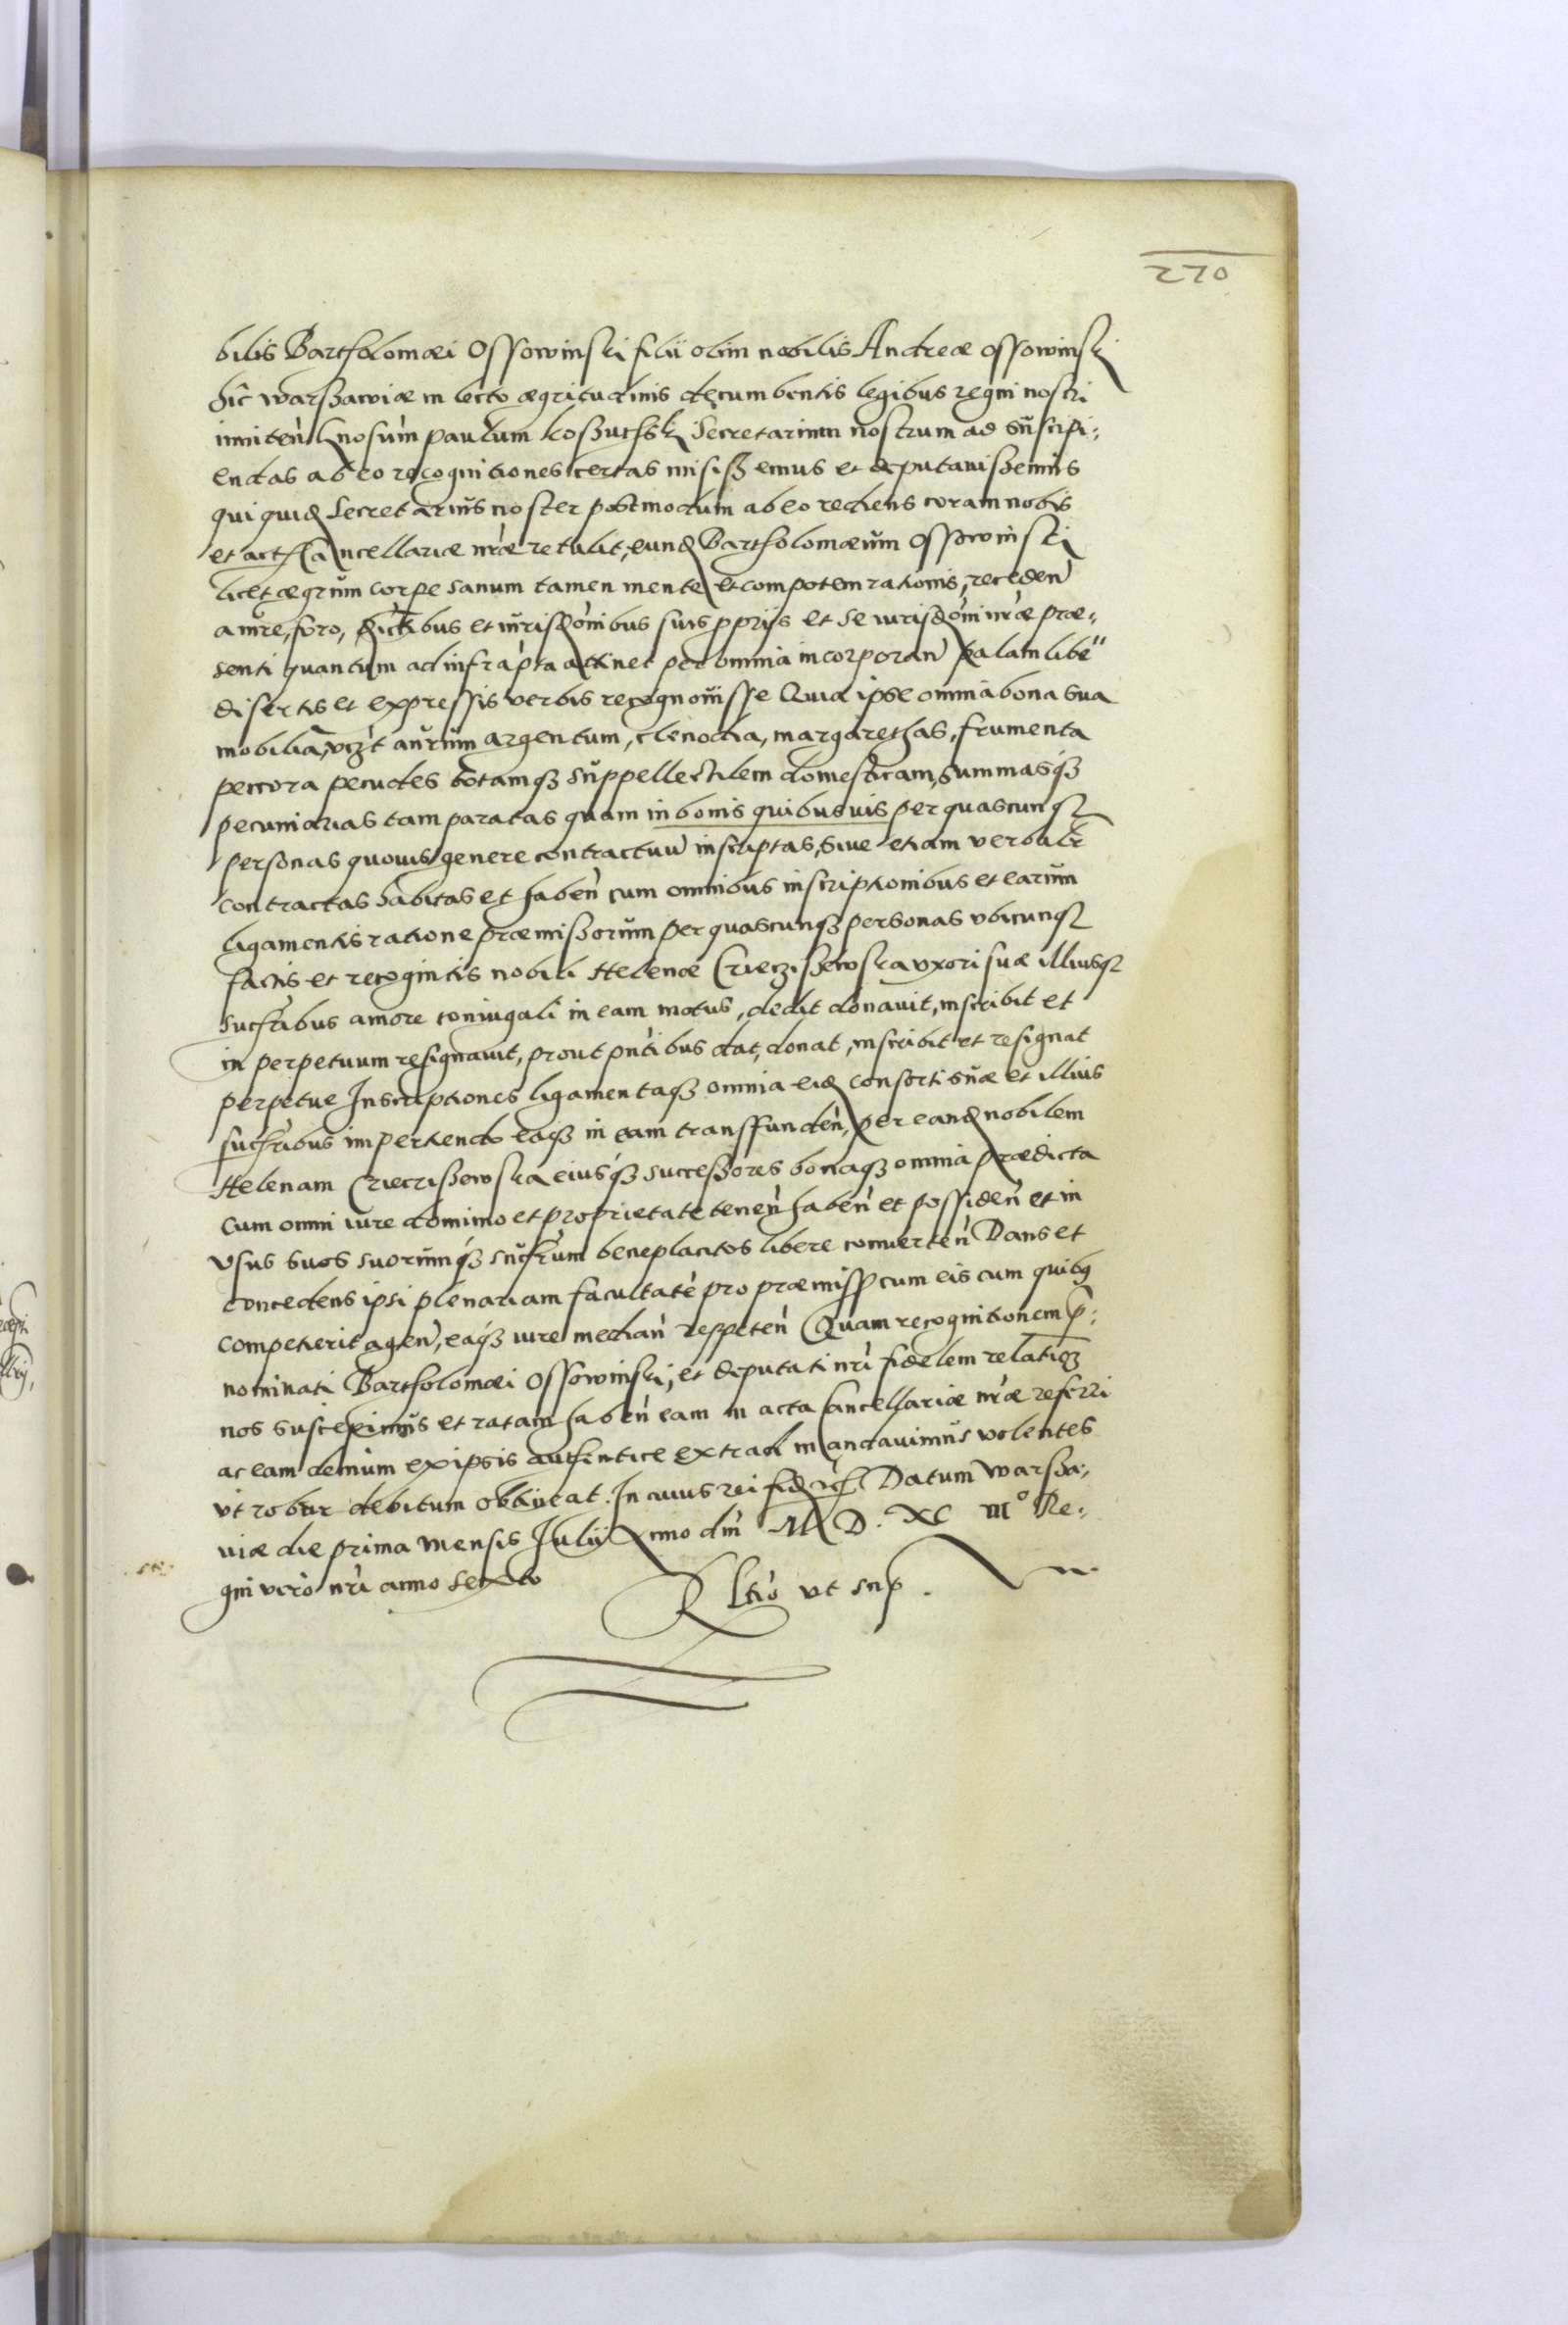 270
bilis Bartholomæi Ossowinski filii olim nobilis Andreæ Ossowinski
hic warßawiæ in lecto ægritudinis decumbentis legibus regni nostri
inniteń Gnosum paulum koßuchsky Secretarium nostrum ad suscipi:
endas ab eo recognitiones certas misißemus et deputavißemus
qui quid Secretarius noster postmodum ab eo rediens coram nobis
et act Cancellariæ nræ retulit, eund Bartholomæum Ossowinski
licet ægrum corpe sanum tamen mente et compotem rationis, receden
a iure, foro, distibus et iurisdonibus suis pprijs et se iurisdoni nræ præ:
senti quantum ad infrapta attinet per omnia incorporan palam libe
disertis et expressis verbis recognovisse Quia ipse omnia bona sua
mobilia, vczt aurum argentum, clenodia, margarethas, frumenta
peccora pecudes totamq3 suppellectilem domesticam, summasq3
pecuniarias tam paratas quam in bonis quibusvis per quascunq3
personas quovis genere contractuum inscriptas, sive etiam verbalr
contractas habitas et haben cum omnibus inscriptionibus et earum
ligamentis ratione præmißorum per quascunq3 personas ubicunq3
factis et recognitis nobili Helenæ Crieczißewska uxori suæ illiusq3
sucribus amore coniugali in eam motus, dedit donavit, inscribit et
in perpetuum resignavit, prout pntibus dat, donat, inscribit et resignat
perpetue Inscriptiones ligamentaq3 omnia eid consorti suæ et illius
sucribus impertiendo eaq3 in eam transfunden, per eand nobilem
Helenam Crieczißewska eiusq3 succeßores bonaq3 omnia prædicta
cum omni iure dominio et proprietate tenen haben et possiden et in
usus suos suorumq3 sucrum beneplacitos libere converten Dans et
concedens ipsi plenariam facultate pro præmiss cum eis cum quibus
competierit agen, eaq3 iure median reppeten Quam recognitionem p:
nominati Bartholomæi Ossowinski, et deputati nri fidelem relatioz
nos suscepimus et ratam haben eam in acta Cancellariæ nræ referri
ac eam demum ex ipsis authentice extradi mandavimus volentes
ut robur debitum obtineat. In cuius rei fid Datum Warßa:
viæ die prima mensis Julij Anno dni M D. XC III° Re:
gni vero nri anno sexto
Rltio ut sup.